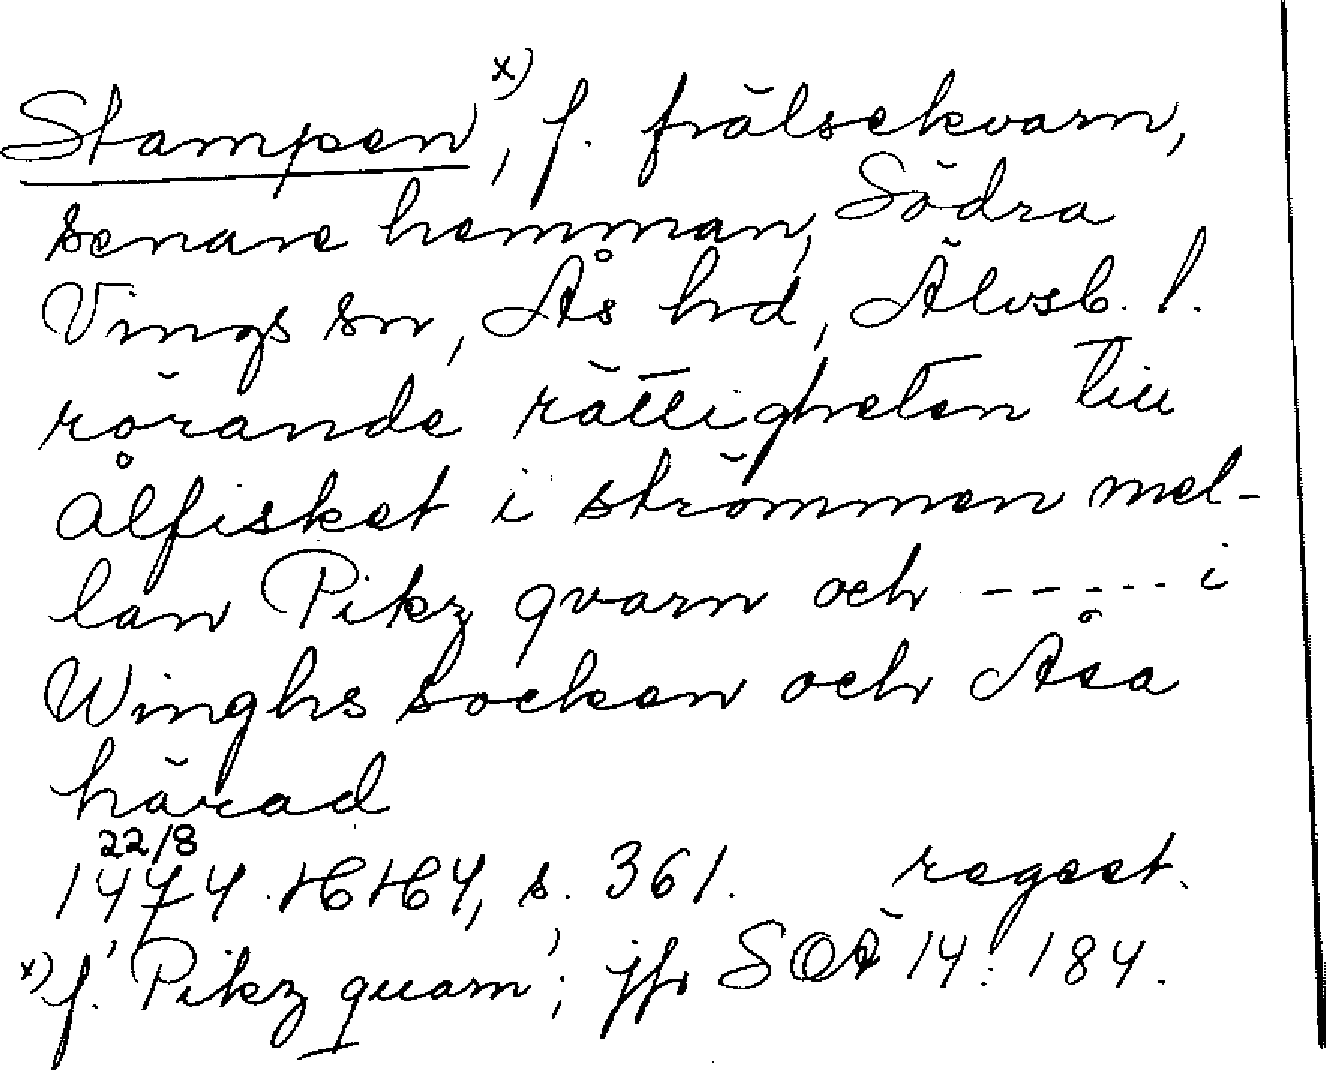 Stampen x), f. frälsekvarn,
senare hemman, Södra
Vings sn, Ås hd, Älvsb. l.
rörande rättigheten till
ålfisket i strömmen mel-
lan Pikz qvarn och ----- i
Winghs socken och Åsa
härad
22/8
1474. HH4, s. 361. regest.
x) f. 'Pikz quarn'; jfr SOÄ 14: 184.